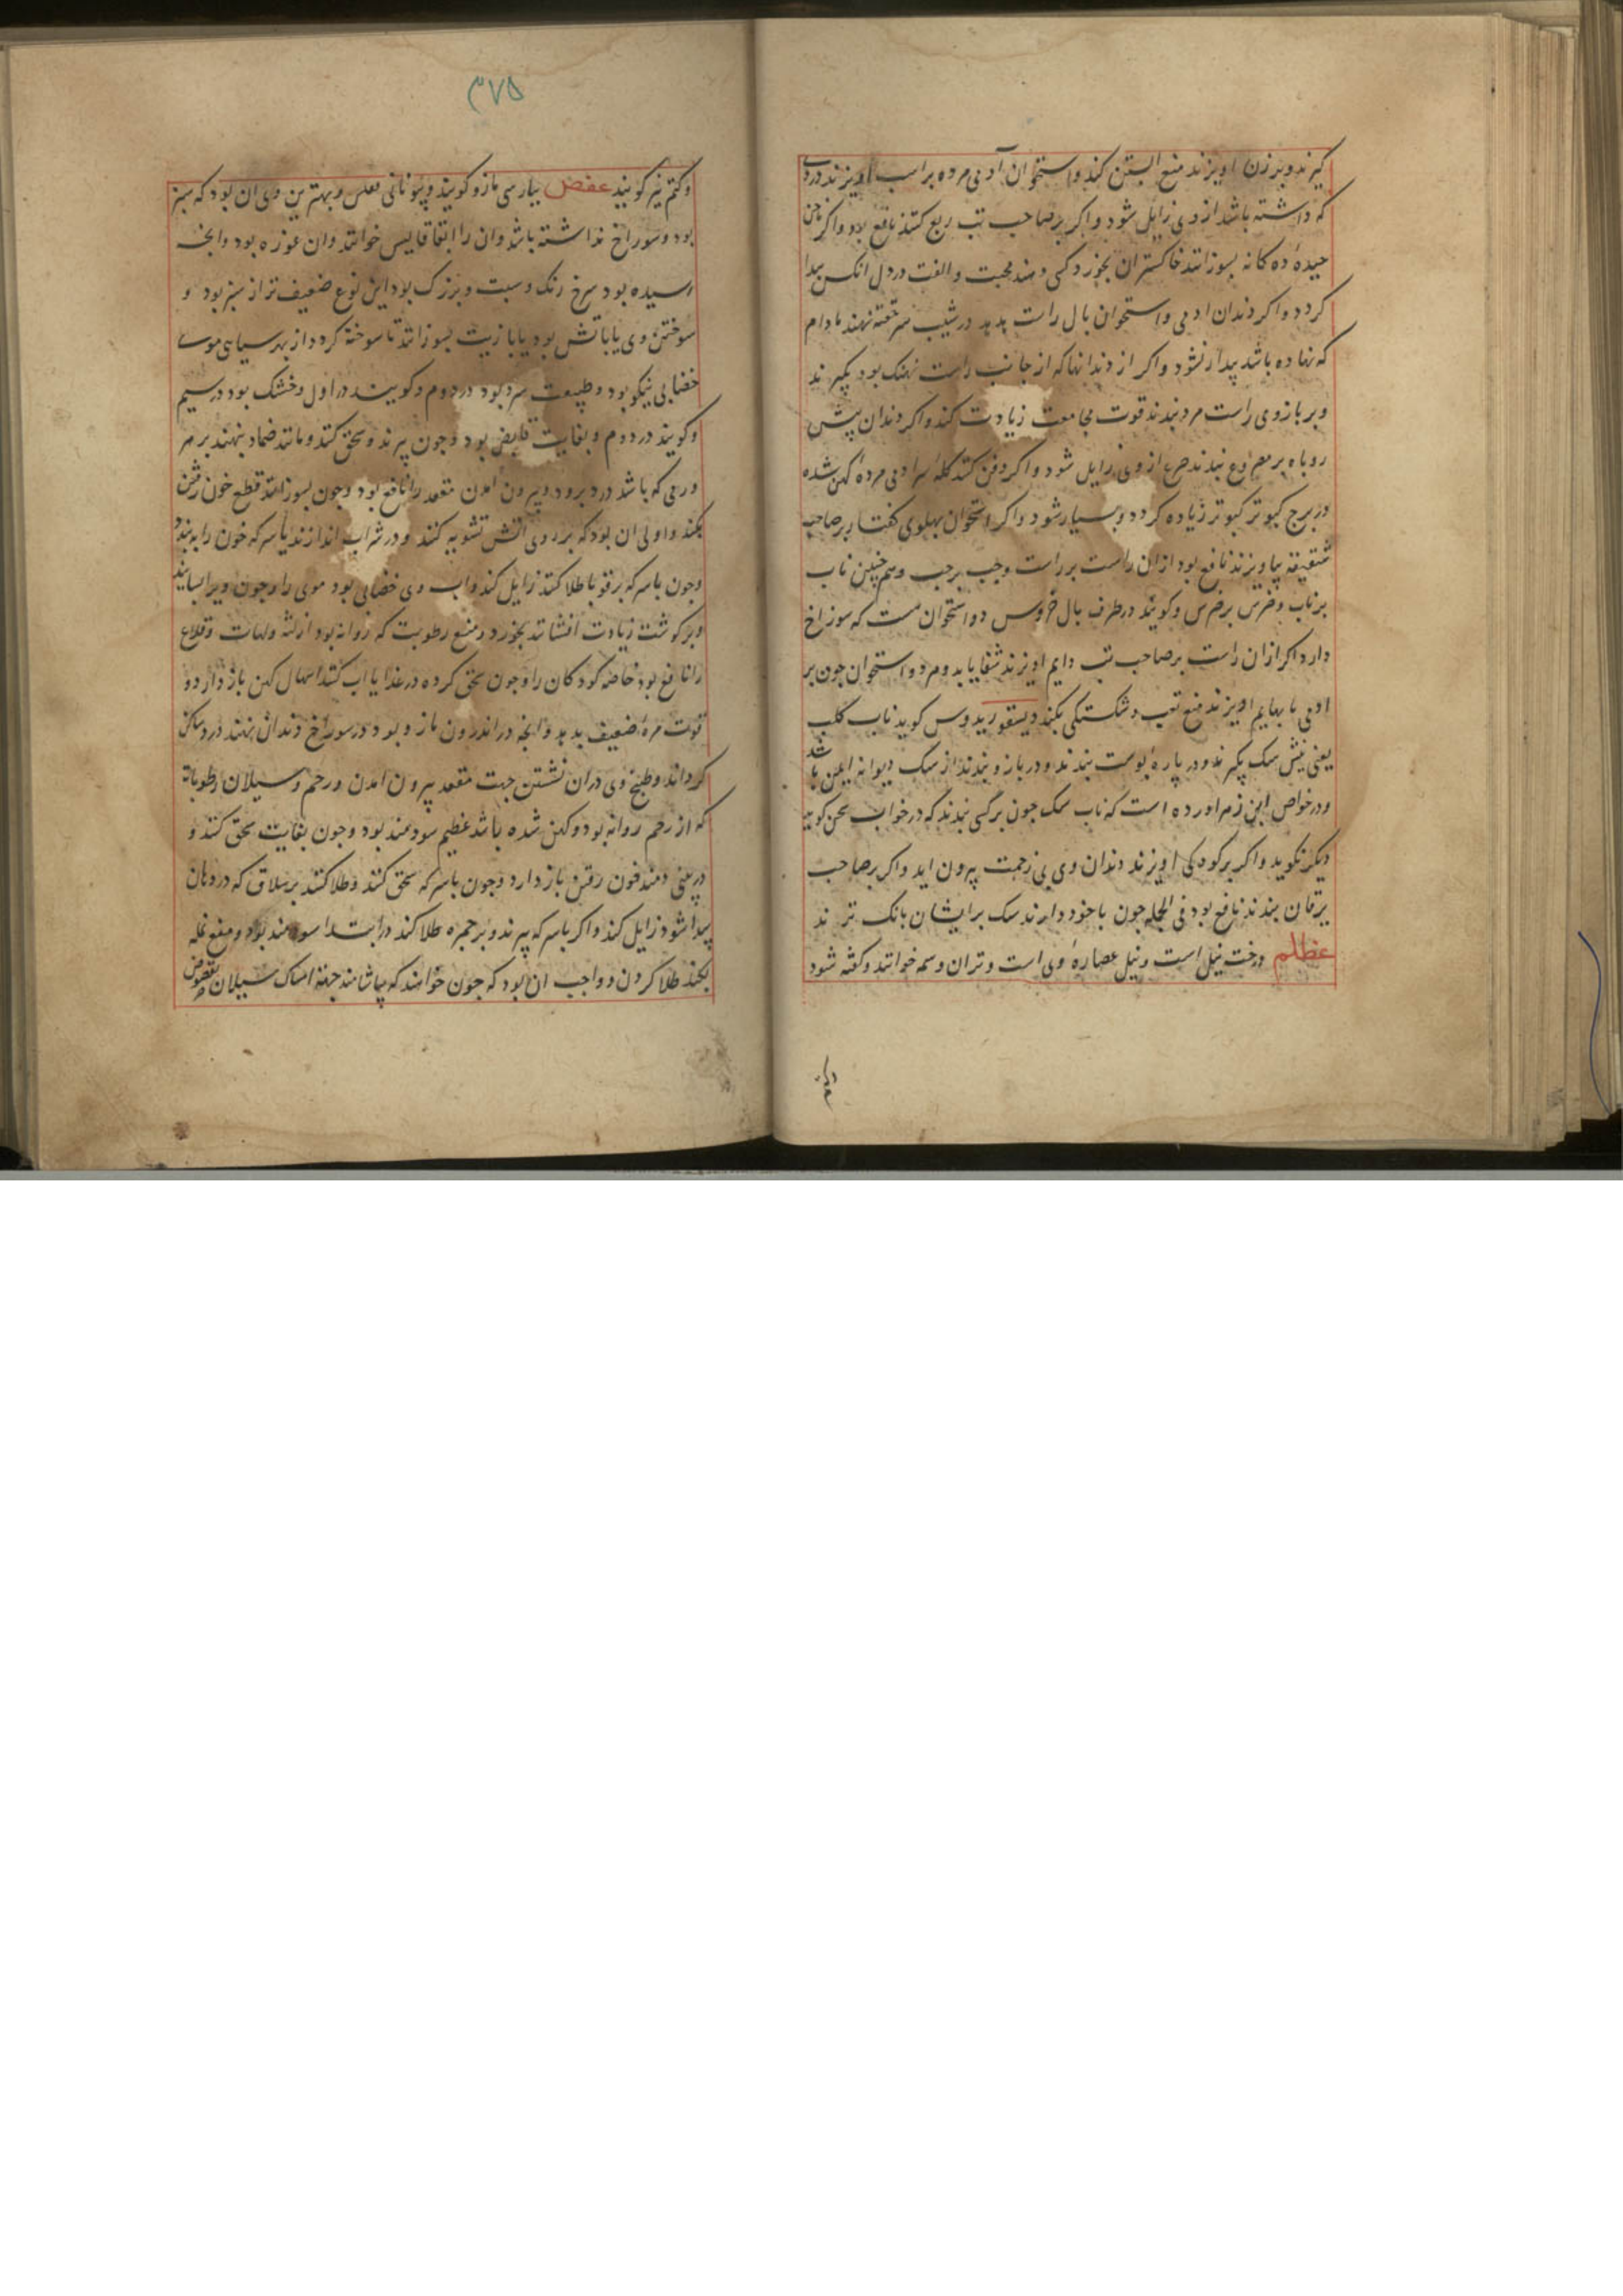 کیرند و بر زن اویزند منع ابستن کند و استخوان آدمی مرده بر اسب اویزند دردی
که داشته باشد از وی زایل شود و اکر بر صاحب تب ربع کنند نافع بود و اکر ناخن
چیده ده کانه بسوزانند خاکستر ان بخورد کسی دهند محبت و الفت در دل انکس پیدا
کردد و اکر دندان ادمی و استخوان بال راست هدهد در شیب سر خفته نهند مادام
که نهاده باشد بیدار نشود و اکر از دندانها که از جانب راست نهنک بود بکیرند
و بر بازوی راست مرد بندند قوت مجامعت زیادت کند و اکر دندان پیش
روباه بر مصروع بندند صرع از وی زایل شود و اکر دفن کنند کله سر ادمی مرده کهن شده
در برج کبوتر کبوتر زیاده کردد و بسیار شود و اکر استخوان پهلوی کفتار بر صاحب
شقیقه بیاویزند نافع بود از ان راست بر راست و چپ بر چپ و هم چنین ناب
بر ناب و ضرس بر ضرس و کویند در طرف بال خروس دو استخوان هست که سوراخ
دارد اکر از ان راست بر صاحب تب دایم اویزند شفا یابد و هر دو استخوان چون بر
ادمی یا بهایم اویزند منع تعب و شکستکی بکند دیسقوریدوس کوید ناب کلب
یعنی نیش سک بکیرند و در پاره پوست بندند و در بازو بندند از سک دیوانه ایمن باشد
و در خواص ابن زهر اورده است که ناب سک چون بر کسی بندند که در خواب سخن کوید
دیکر نکوید و اکر بر کودکی اویزند دندان وی بی زحمت بیرون اید و اکر بر صاحب
یرقان بندند نافع بود فی الجمله چون با خود دارند سک بر ایشان بانک نزند
عظلم درخت نیل است و نیل عصاره وی است و تران وسمه خوانند و کفته شود
۳۷۵
و کتم نیز کویند عفص بپارسی مازو کویند و بیونانی فعلس و بهترین وی ان بود که سبز
بود و سوراخ نداشته باشد وان را انفاقالیس خوانند وان غوزه بود و انجه
رسیده بود سرخ رنک و سبت و بزرک بود این نوع ضعیف تر از سبز بود و
سوختن وی یا باتش بود یا با زیت بسوزانند تا سوخته کردد از بهر سیاهی موی
خضابی نیکو بود و طبیعت سرد بود در دوم و کویند در اول و خشک بود در سیم
و کویند در دوم و بغایت قابض بود و چون بپزند و سحق کنند و مانند ضماد بنهند بر هر
ورمی که باشد در دبر بود و بیرون امدن مقعد را نافع بود و چون بسوزانند قطع خون رفتن
بکند و اولی ان بود که بر روی اتش تشویه کنند و در شراب اندازند یا سرکه خون را ببندد
و چون با سرکه بر قوبا طلا کنند زایل کند و اب وی خضابی بود موی را و چون ویرا بسایند
و بر کوشت زیادت افشانند بخورد و منع رطوبت که روانه بود از لثه و لهات و قلاع
را نافع بود خاصه کودکان را و چون سحق کرده در غذا یا اب کنند اسهال کهن باز دارد و
قوت معده ضعیف بدهد و انجه در اندرون مازو بود در سوراخ دندان نهند درد ساکن
کرداند و طبخ وی در ان نشستن جهت مقعد بیرون امدن و رحم و سیلان رطوباتی
که از رحم روانه بود و کهن شده باشد عظیم سودمند بود و چون بغایت سحق کنند و
در بینی دمند خون رفتن باز دارد و چون با سرکه سحق کنند و طلا کنند بر سلاق که در دهان
پیدا شود زایل کند و اکر با سرکه بپزند و بر حمره طلا کنند در ابتدا سودمند بود و منع نمله
بکند طلا کردن و واجب ان بود که چون خواهند که بیاشامند جهة امساک سیلان بقرص